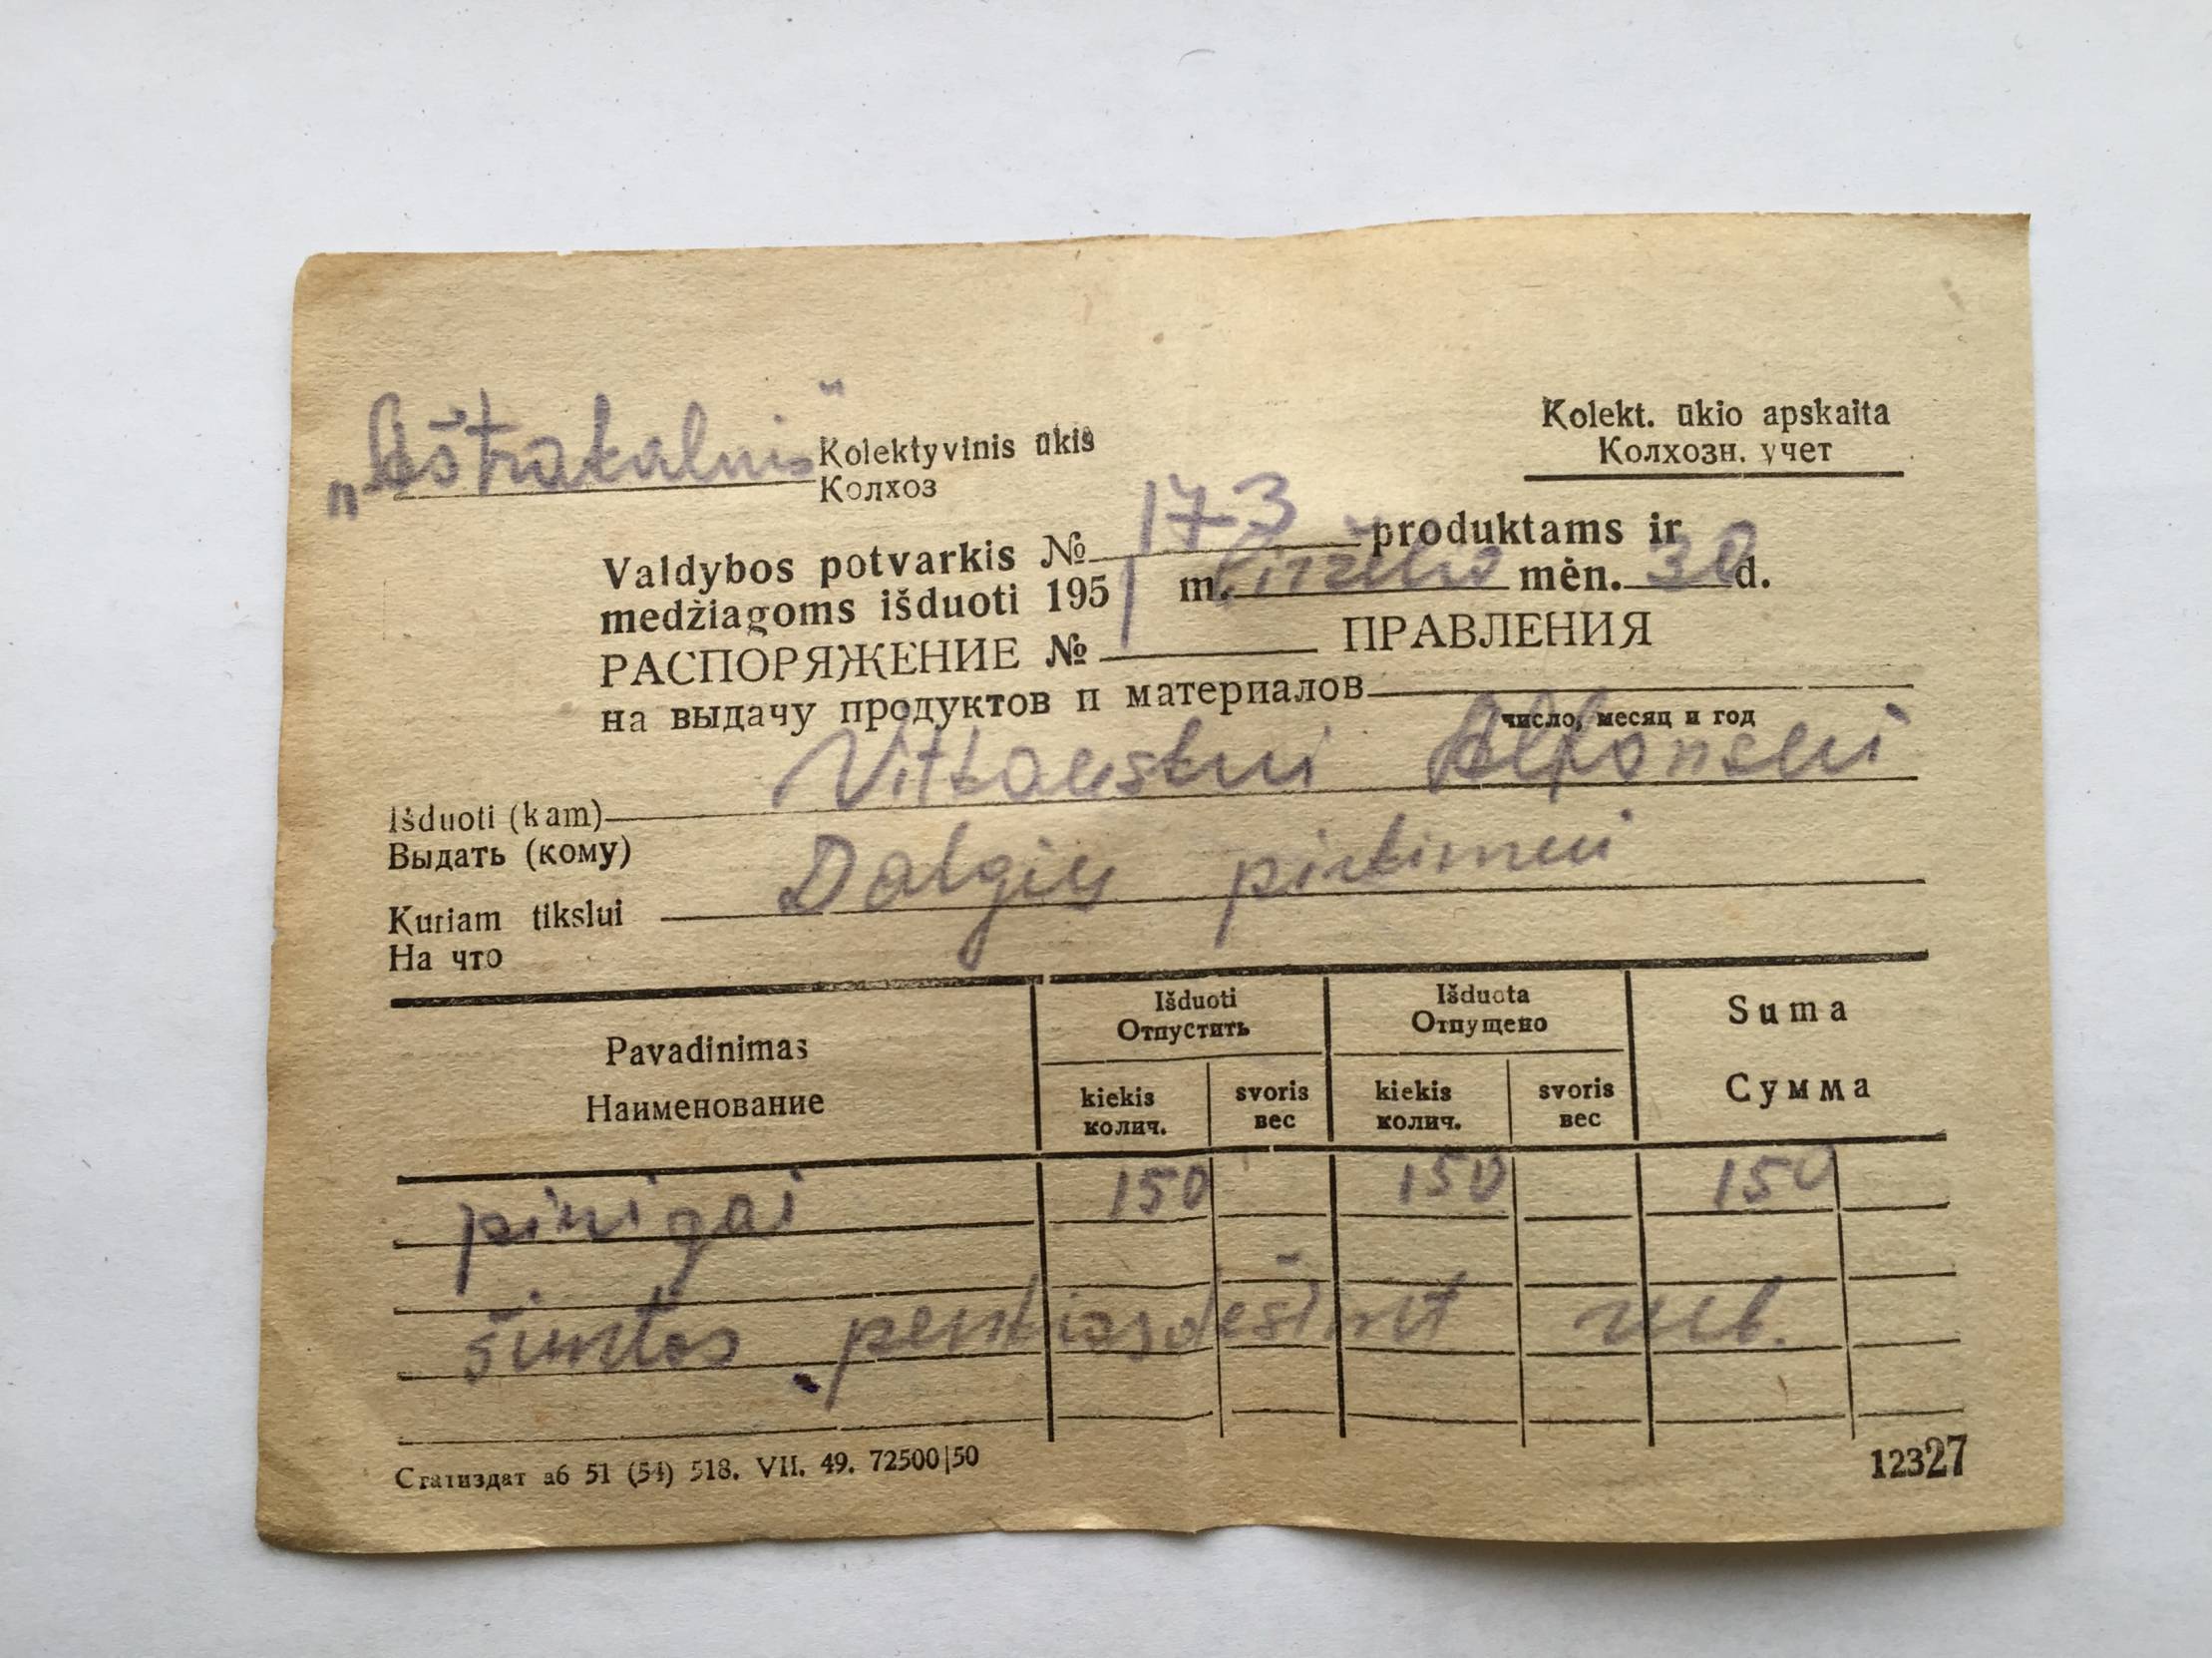 „Aštrakalnis“ Kolektyvinis ūkis
Колхоз
Kolekt. ūkio apskaita
Колхозн. учет
Valdybos potvarkis № 173 produktams ir
medžiagoms išduoti 1951 m. birželio mėn. 30 d.
РАСПОРЯЖЕНИЕ № ПРАВЛЕНИЯ
на выдачу продуктов и материалов
число, месяц и год
Išduoti (kam) Vitkauskui Alfonsui
Выдать (кому)
Kuriam tikslui Dalgių pirkimui
На что
Pavadinimas Išduoti Išduota Suma
Наименование Отпустить Отпущено Сумма
kiekis svoris kiekis svoris
колич. вес колич. вес
pinigai 150 150 150
šimtas penkiasdešimt rub.
Статиздат аб 51 (54) 518. VII. 49. 72500|50
12327